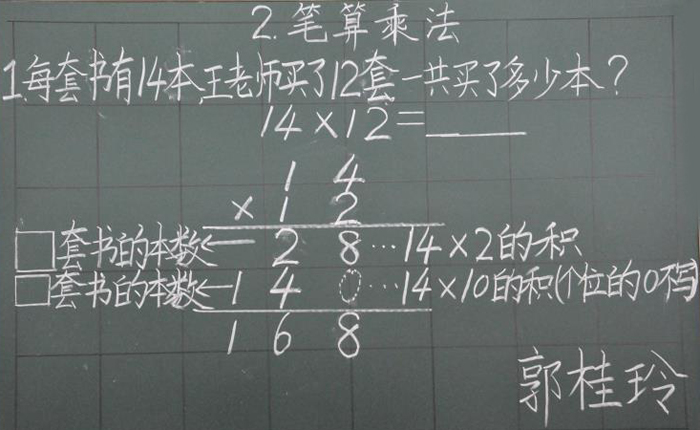 2.笔算乘法
1.每套书有14本,王老师买了12套一共买了多少本?
14×12=____
1 4
×1 2
□套书的本数← 2 8…14×2的积
□套书的本数←1 4 0…14×10的积(个位的0不写)
1 6 8
郭桂玲